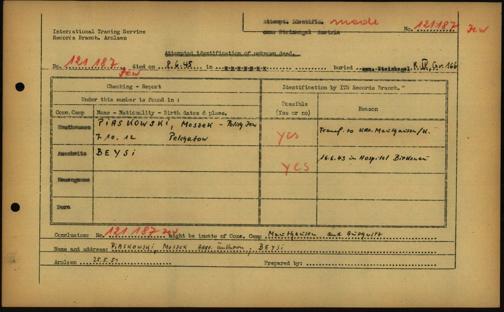 International Tracing Service
Records Branch, Arolsen
Attempt. Identific. made
Cem. Steinkogel Austria
No. 121187
Attempted identification of unknown dead.
No. 121 187 Jew died on 8.6.45 in buried Cem. Steinkogel R. IV, Gr. 166
Checking - Report
Identification by ITS Records Branch.
Under this number is found in :
Possible
Reason
Conc. Camp
Name - Nationality - Birth dates & place.
(Yes or No)
Mauthausen
PIASKOWSKI, MOSZEK - Jew
7.10.12
yes
Transf. to KL Mauthausen/
Auschwitz
BEYSI
yes
16.6.43 in Hospital Birkenau
Buchenwald
Dora
Conclusion: No. 121 187 Jew might be inmate of Conc. Camp Mauthausen and Auschwitz
Name and address: PIASKOWSKI Moszek BEYSI
Arolsen 25.5.51 Prepared by: